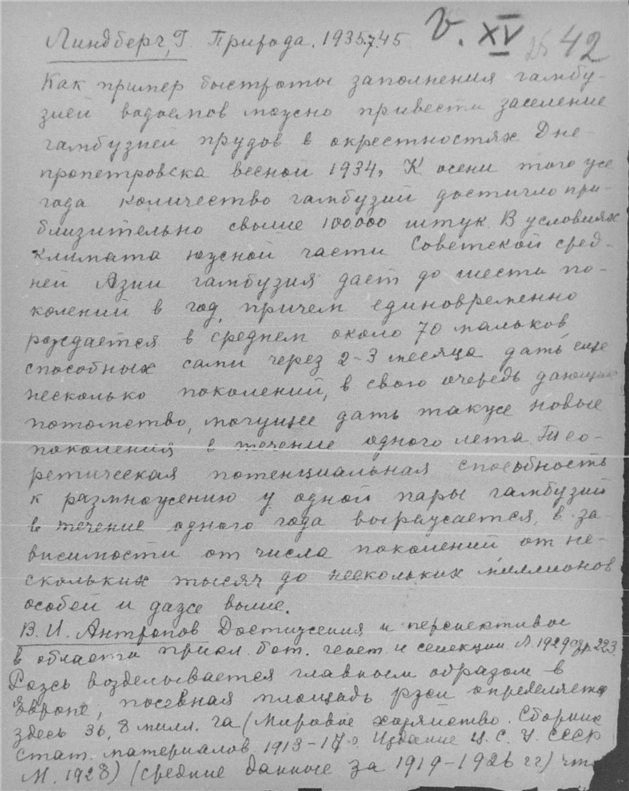 Линдберг, Г Природа. 1935.7.45 V. XV 42
Как пример быстроты заполнения гамбу-
зией водоемов можно привести заселение
гамбузией прудов в окрестностях Дне-
пропетровска весной 1934, К осени того же
года количество гамбузий достигло при-
близительно свыше 100000 штук. В условиях
климата южной части Советской сред-
ней Азии гамбузия дает до шести по-
колений в год, причем единовременно
рождается в среднем около 70 мальков
способных сами через 2-3 месяца дать еще
несколько поколений, в свою очередь дающих
потомство, могущее дать также новые
поколения в течение одного лета. Тео-
ретическая потенциальная способность
к размножению у одной пары гамбузий
в течение одного года выражается, в за-
висимости от числа поколений от не-
скольких тысяч до нескольких миллионов
особей и даже выше.
В. И. Антропов Достижения и перспективы
в области прикл. бот. генет и селекции Л. 1929 223
Рожь возделывается главным образом в
Европе, посевная площадь ржи определяется
здесь 36,8 милл. га (Мировое хозяйство. Сборник
стат. материалов. 1913-17 Издание Ц. С. У СССР
М. 1928) (средние данные за 1919-1926 гг) что